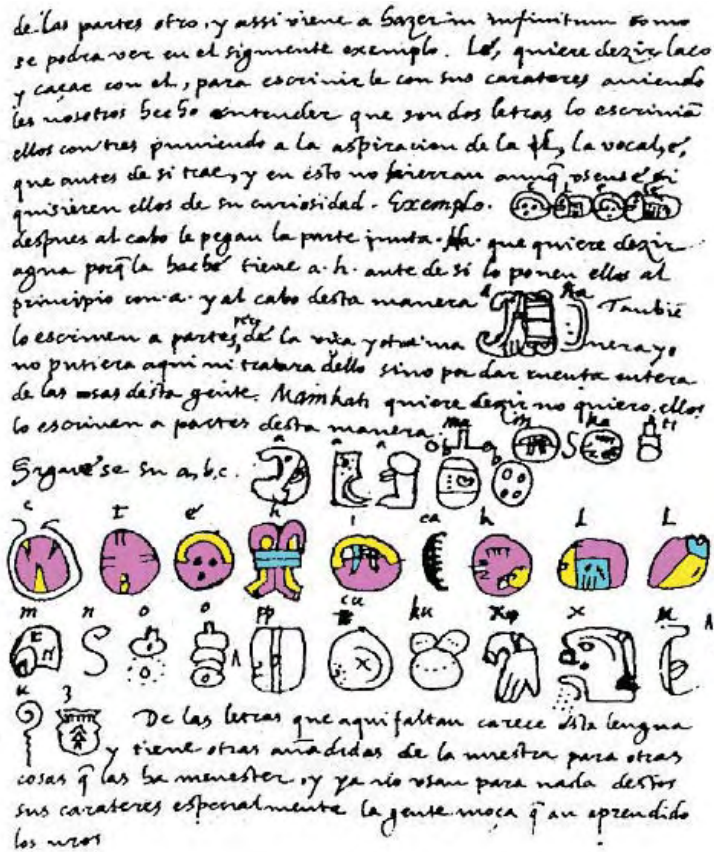 de las partes otro, y assi viene a hazer in infinitum como
se podra ver en el siguiente exemplo. Lé, quiere dezir laço
y caçar con el, para escrivirle con sus carateres aviendo
les nosotros hecho entender que son dos letras lo escrivian
ellos con tres puniendo a la aspiracion de la l, la vocal, é,
que antes de si trae, y en esto no hierran aunq̃ usense, si
quisieren ellos de su curiosidad. Exemplo. e l e le
despues al cabo le pegan la parte junta. Ha. que quiere dezir
agua porq̃ la hache tiene a. h. ante de si lo ponen ellos al
principio con a. y al cabo desta manera a ha Tambiẽ
lo escriven a partes, de la una y otra ma nera yo
no pusiera aqui ni tratara dello sino por dar cuenta entera
de las cosas desta gente. Mainkati quiere dezir no quiero, ellos
lo escriven a partes desta manera. ma i n ka ti
Siguese su a, b, c. a a a b b
c t é h i ca k l l
m n o o pp cu ku x x u
u z De las letras que aqui faltan carece esta lengua
y tiene otras añadidas de la nuestra para otras
cosas q̃ las ha menester, y ya no usan para nada destos
sus carateres especialmente la gente moça q̃ an aprendido
los nros